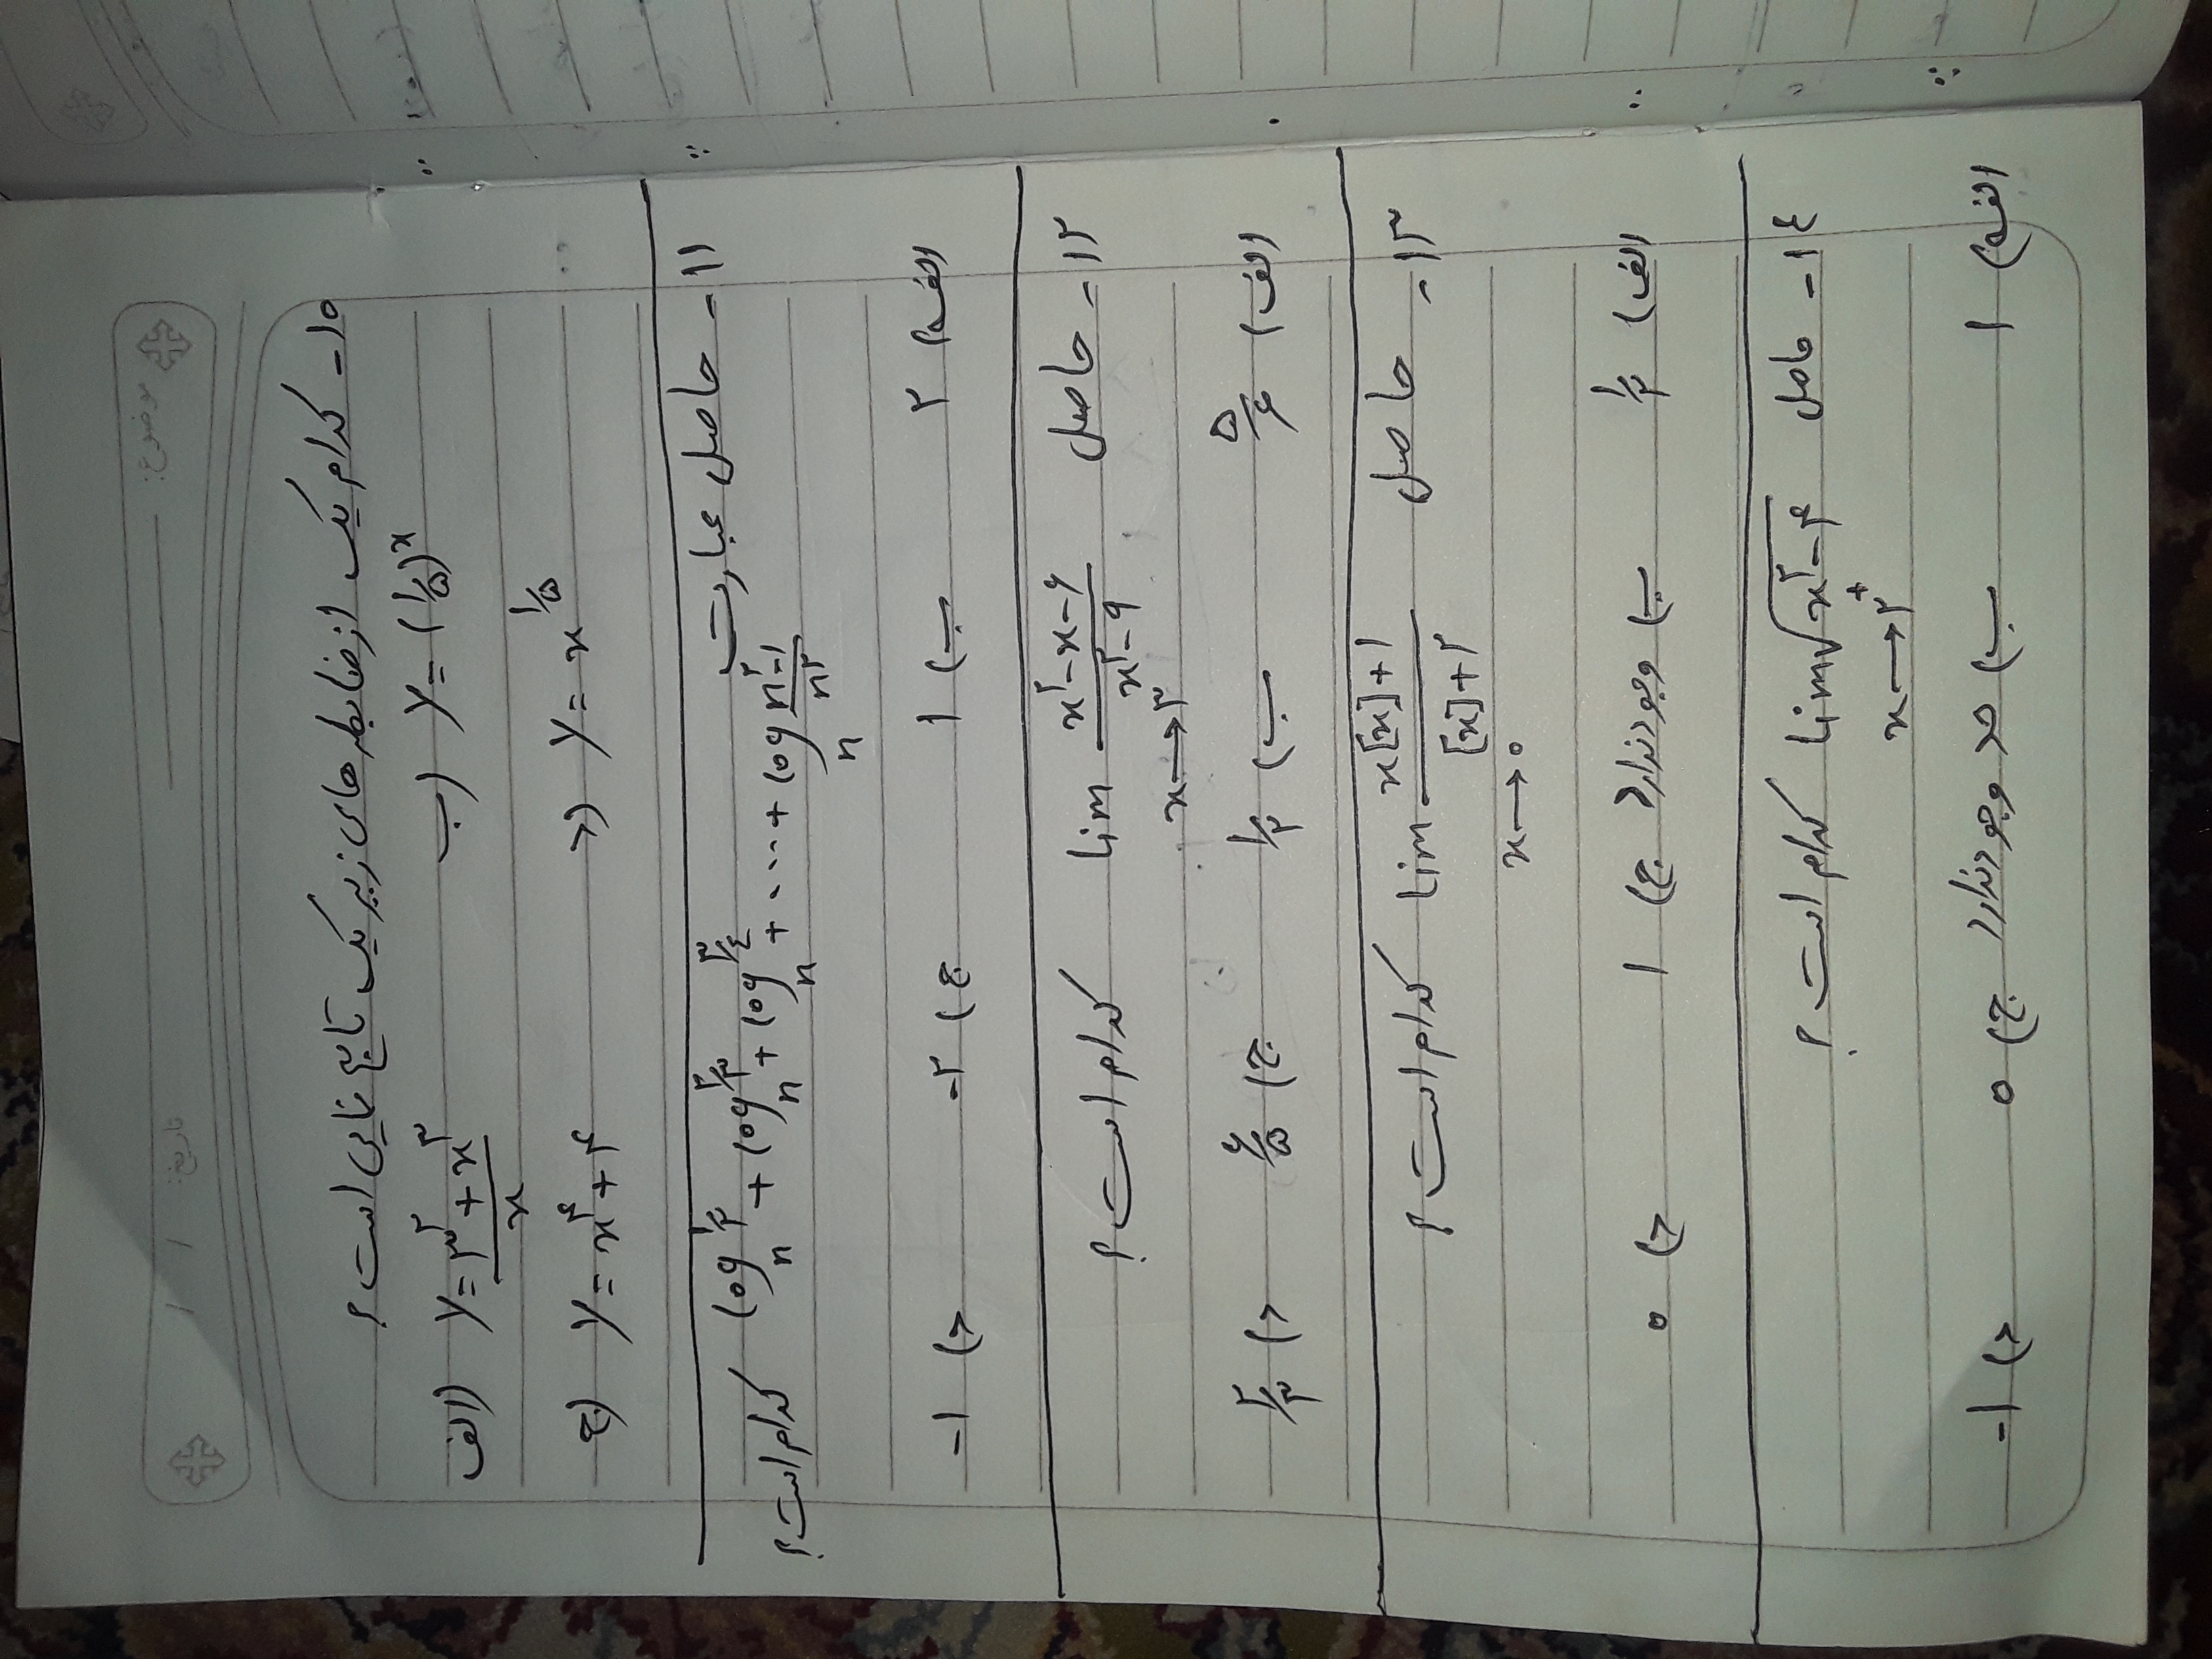 موضوع: تاریخ: / /
۱۰- کدام یک از ضابطه های زیر یک تابع نمایی است؟
الف) y = (۳^۲ + x^۳)/x ب) y = (۱/۵)^x
ج) y = x^۴ + ۴ د) y = x^(۱/۵)
۱۱- حاصل عبارت log_n ۱/۲ + log_n ۲/۳ + log_n ۳/٤ + ... + log_n (n^۲-۱)/n^۲ کدام است؟
الف) ۲ ب) ۱ ج) -۲ د) -۱
۱۲- حاصل lim x→۳ (x^۲-x-۶)/(x^۲-۹) کدام است؟
الف) ۵/۶ ب) ۱/۲ ج) ۶/۵ د) ۲/۳
۱۳- حاصل lim x→۰ (x[x]+۱)/([x]+۲) کدام است؟
الف) ۱/۲ ب) وجود ندارد ج) ۱ د) ۰
۱٤- حاصل lim x→۲^+ √(x^۲-۴) کدام است؟
الف) ۱ ب) حد وجود ندارد ج) ۰ د) -۱